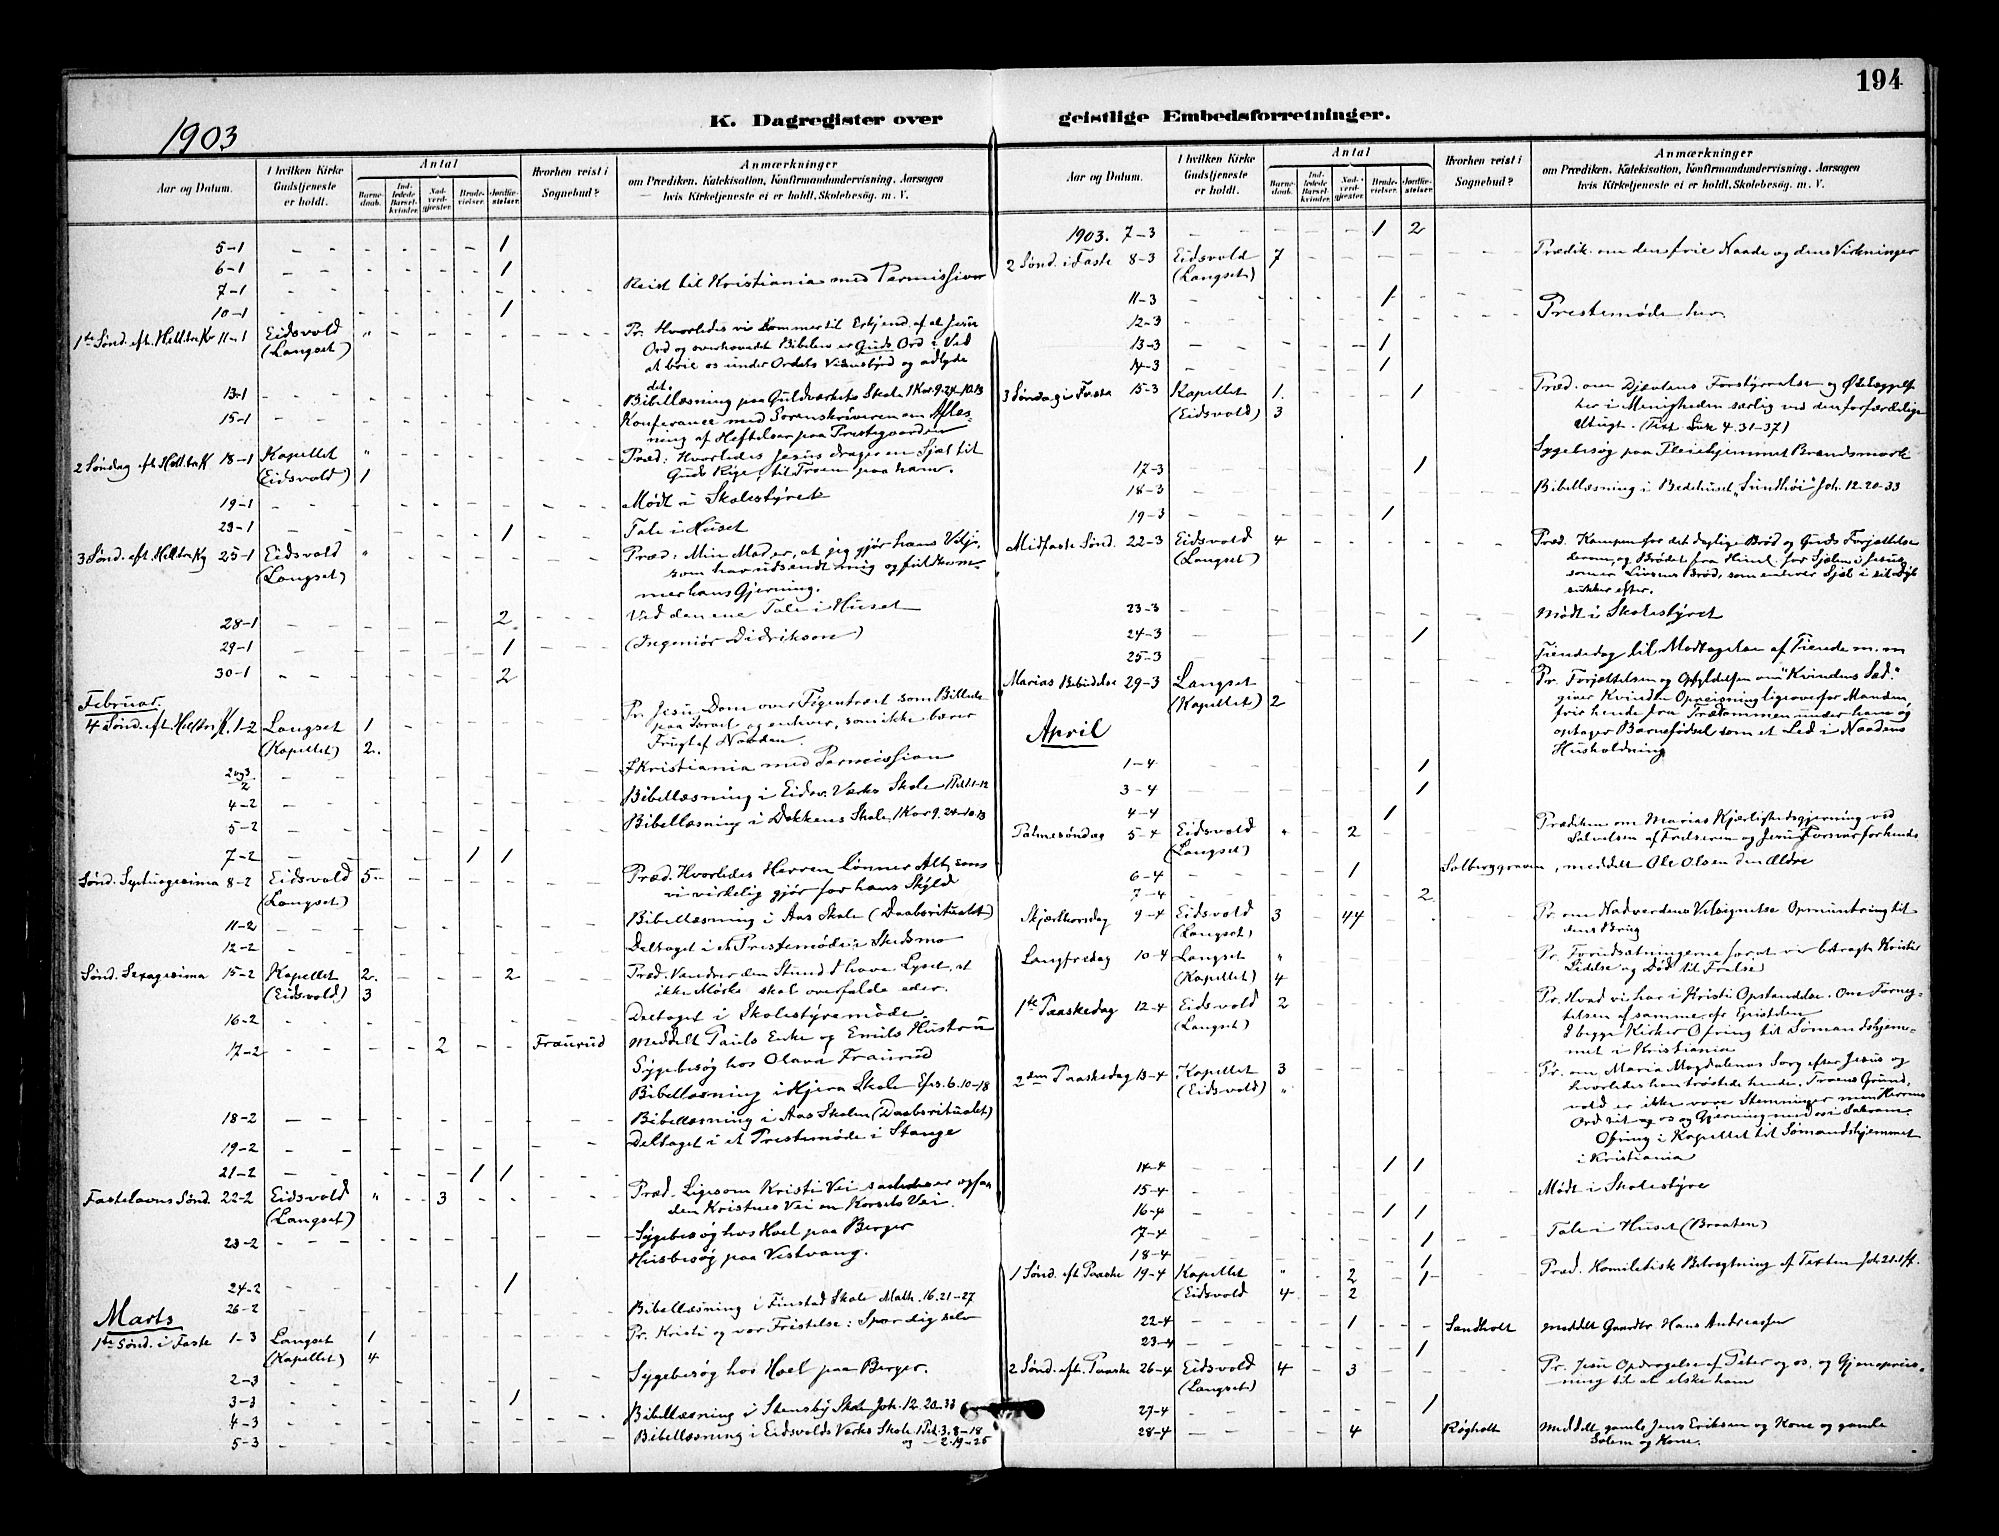 194
K. Dagregister over geistlige Embedsforretninger.
1903
Aar og Datum.
I hvilken Kirke Gudstjeneste er holdt.
Antal
Barnedaab.
Indledede Barselkvinder.
Nadverdgjæster.
Brudevielser.
Jordfæstelser.
Hvorhen reist i Sognebud?
Anmærkninger
om Prædiken, Katekisation, Konfirmandundervisning, Aarsagen
hvis Kirketjeneste ei er holdt, Skolebesøg. m. V.
5-1 - - - - - - 1
6-1 - - - - - - 1
7-1 - - - - - - - Reist til Kristiania med Permission
10-1 - - - - - - 1
1ste Sønd. eft. Helltrek 11-1 Eidsvold " - - - - Pr. Hvorledes vi kommer til Erkjend. af at Jesu
(Langset) Ord og overhovedet Bibelen er Guds Ord i Ved
at bøie os under Ordets Vidnesbyrd og adlyde
det.
13-1 - - - - - - - Bibellæsning paa Guldværkets Skole 1 Kor. 9.24-10.13
15-1 - - - - - - - Konferance med Sorenskriveren om Aflæs-
ning af Heftelser paa Prestegaarden
2 Søndag eft. HelltreK 18-1 Kapellet " - - - - Præd: Hvorledes Jesus drager en Sjæl til
(Eidsvold) 1 Guds Rige, til Troen paa ham.
19-1 - - - - - - - Mødt i Skolestyret
23-1 - - - - - - 1 Tale i Huset
3 Sønd. eft. Helltrekg 25-1 Eidsvold " - - - - Præd: Min Mad er, at jeg gjør hans Vilje,
(Langset) som har udsendt mig og fuldkom-
mer hans Gjerning.
28-1 - - - - - - 2 Ved den ene Tale i Huset
29-1 - - - - - - 1 (Ingeniør Didriksen)
30-1 - - - - - - 2
Februar.
4 Sønd. eft. Helltrek. 1-2 Langset 1 - Pr. Jesu Dom over Figentræet som Billede
(Kapellet) 2. paa Israel og enhver, som ikke bærer
Frugt af Naaden.
2 og 3/2 - - - - - - - I Kristiania med Permission
4-2 - - - - - - - Bibellæsning i Eidsv. Værks Skole 1 Pet. 1-12
5-2 - - - - - - - Bibellæsning i Dokkens Skole 1 Kor 9.24-10.13
7-2 - - - - - 1 1
Sønd. Septuagesima 8-2 Eidsvold 5 - Præd. Hvorledes Herren lønner Alt, som
(Langset) vi virkelig gjør for hans Skyld
11-2 - - - - - - - Bibellæsning i Aas Skole (Daabsritualet)
12-2 - - - - - - - Deltaget i et Prestemøde i Skedsmo
Sønd. Sexagesima 15-2 Kapellet 2. - - - 2 Præd. Vandrer den Stund I have Lyset, at
(Eidsvold) 3 ikke Mørke skal overfalde eder.
16-2 - - - - - - - Deltaget i Skolestyremøde.
17-2 - - - - 2 - - Fraurud Meddelt Pauls Enke og Emils Hustru
Sygebesøg hos Olava Fraurud
Bibellæsning i Hjera Skole Efes. 6.10-18
18-2 - - - - - - - Bibellæsning i Aas Skolen (Daabsritualet)
19-2 - - - - - - - Deltaget i et Prestemøde i Stange
21-2 - - - - - 1 1
Fastelavns Sønd. 22-2 Eidsvold " - 3 - - Præd. Ligesom Kristi Vei saaledes er ogsaa
(Langset) den Kristnes Vei en Korsets Vei.
23-2 - - - - - - - Sygebesøg hos Hoel paa Berger
Husbesøg paa Vestvang.
24-2 - - - - - - 1
Marts
26-2 - - - - - - - Bibellæsning i Finstad Skole Math. 16.21-27
1ste Sønd. i Faste 1-3 Langset 1 Pr. Kristi og vor Fristelse: Spar dig selv
(Kapellet) 4
2-3 - - - - - - - Sygebesøg hos Hoel paa Berger.
3-3 - - - - - - 1
4-3 - - - - - - - Bibellæsning i Stensby Skole Joh. 12.20-33
5-3 - - - - - - - Bibellæsning i Eidsvolds Værks Skole 1 Pet. 3.8-18
og - 2.19-25
Aar og Datum.
I hvilken Kirke Gudstjeneste er holdt.
Antal
Barnedaab.
Indledede Barselkvinder.
Nadverdgjæster.
Brudevielser.
Jordfæstelser.
Hvorhen reist i Sognebud?
Anmærkninger
om Prædiken, Katekisation, Konfirmandundervisning, Aarsagen
hvis Kirketjeneste ei er holdt, Skolebesøg. m. V.
1903. 7-3 - - - - - 1 2
2 Sønd. i Faste 8-3 Eidsvold 7 - - - - Prædik. om den frie Naade og dens Virkninger
(Langset)
11-3 - - - - - 1 -
12-3 - - - - - - - Prestemøde her
13-3 - - - - - 1 -
14-3 - - - - - 1
3 Søndag i Faste 15-3 Kapellet 1. - - - 1 Præd. om Djævlens Forstyrrelse og Ødelæggelse
(Eidsvold) 3 her i Menigheden særlig ved den forfærdelige
Utugt. (Text Luk 4.31-37)
17-3 - - - - - - 1 Sygebesøg paa Pleiehjemmet Brandsmork
18-3 - - - - - - - Bibellæsning i Bedehuset "Sundhøi" Joh. 12.20-33
19-3 - - - - - 1
Midfaste Sønd. 22-3 Eidsvold 4 - - - - Præd. Kampen for det daglige Brød og Guds Forjættelse
(Langset) derom, og Brødet fra Himl. for Sjælen i Jesus
som er Livsens Brød, som enhver Sjæl i sit Dyb
sukker efter.
23-3 - - - - - - - Mødt i Skolestyret
24-3 - - - - - - 1
25-3 - - - - - - - Tiendedag til Modtagelse af Tiende m.m
Marias Bebudelse 29-3 Langset Pr. Forjættelsen og Opfyldelsen om "Kvindens Sæd"
(Kapellet) 2 giver Kvinden Opreisning ligeoverfor Manden,
frir hende fra Trældommen under ham og
optager Barnefødsel som et Led i Naadens
Husholdning
April
1-4 - - - - - - 1
3-4 - - - - - - 1
4-4 - - - - - 1
Palmesøndag 5-4 Eidsvold " - 2 - - Prædiken om Marias Kjærlighedsgjerning ved
(Langset) Salvelsen af Frelseren og Jesu Forsvar for hende
6-4 - - - - 1 - - Solberggraven, meddelt Ole Olsen den Ældre
7-4 - - - - - - 2
Skjærthorsdag 9-4 Eidsvold 3 - 44 - Pr. om Nadverdens Velsignelse Opmuntring til
(Langset) dens Brug
Langfredag 10-4 Langset " Pr. Forudsætningerne for at vi betragte Kristi
(Kapellet) 4 Lidelse og Død til Frelse
1ste Paaskedag 12-4 Eidsvold 2 Pr. Hvad vi har i Kristi Opstandelse. Om Forneg-
(Langset) telsen af samme, efr Epistelen
I begge Kirker Ofring til Sømandshjem-
met i Kristiania
2den Paaskedag 13-4 Kapellet 3 Pr. om Maria Magdalenas Sorg efter Jesus og
(Eidsvold) " hvorledes han trøstede hende. Troens Grund-
vold er ikke vore Stemninger men Herrens
Ord til og os og Gjerning med os i Sakram.
Ofring i Kapellet til Sømandshjemmet
i Kristiania
14-4 - - - - - 1 1
15-4 - - - - - - - Mødt i Skolestyre
16-4 - - - - - 1 1
17-4 - - - - - - 1 Tale i Huset (Braaten)
18-4 - - - - - - 1
1 Sønd. eft Paaske 19-4 Kapellet " - 2 - 1 Præd. Homiletisk Betragtning af Texten Joh. 21.1ff.
(Eidsvold 4 - 2
22-4 - - - - 1 - - Sandholt meddelt Gaardbr. Hans Andreassen
23-4 - - - - - - 1
2 Sønd. eft. Paaske 26-4 Eidsvold 4 - 3 - - Pr. Jesu Opdragelse af Peter og os, og Gjenoprei-
(Langset) ning til at elske ham
27-4 - - - - - - 1
28-4 - - - - 4 - - Røgholt Meddelt gamle Jens Eriksen og Kone og gamle
Solem og Kone.